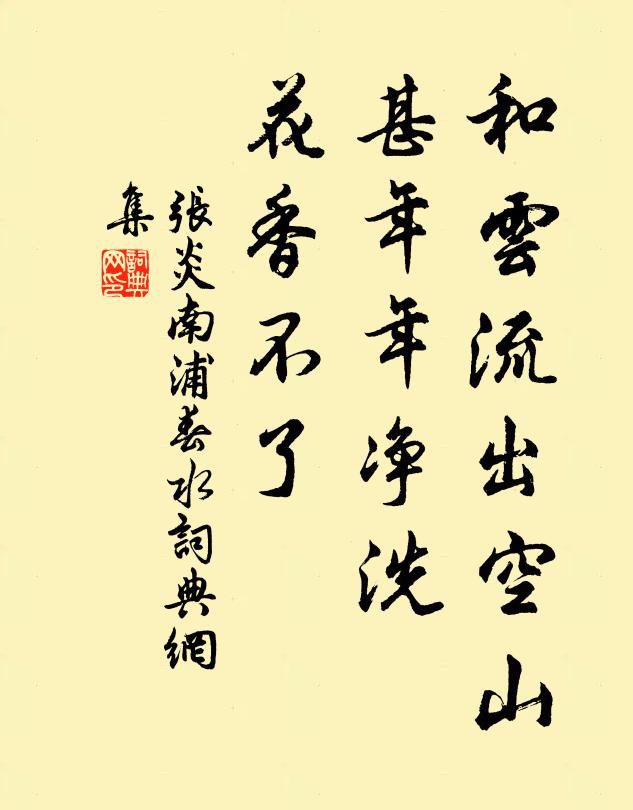 和雲流出空山
甚年年净洗
花香不了
張炎南浦春水詞典網
集
詞典
网印